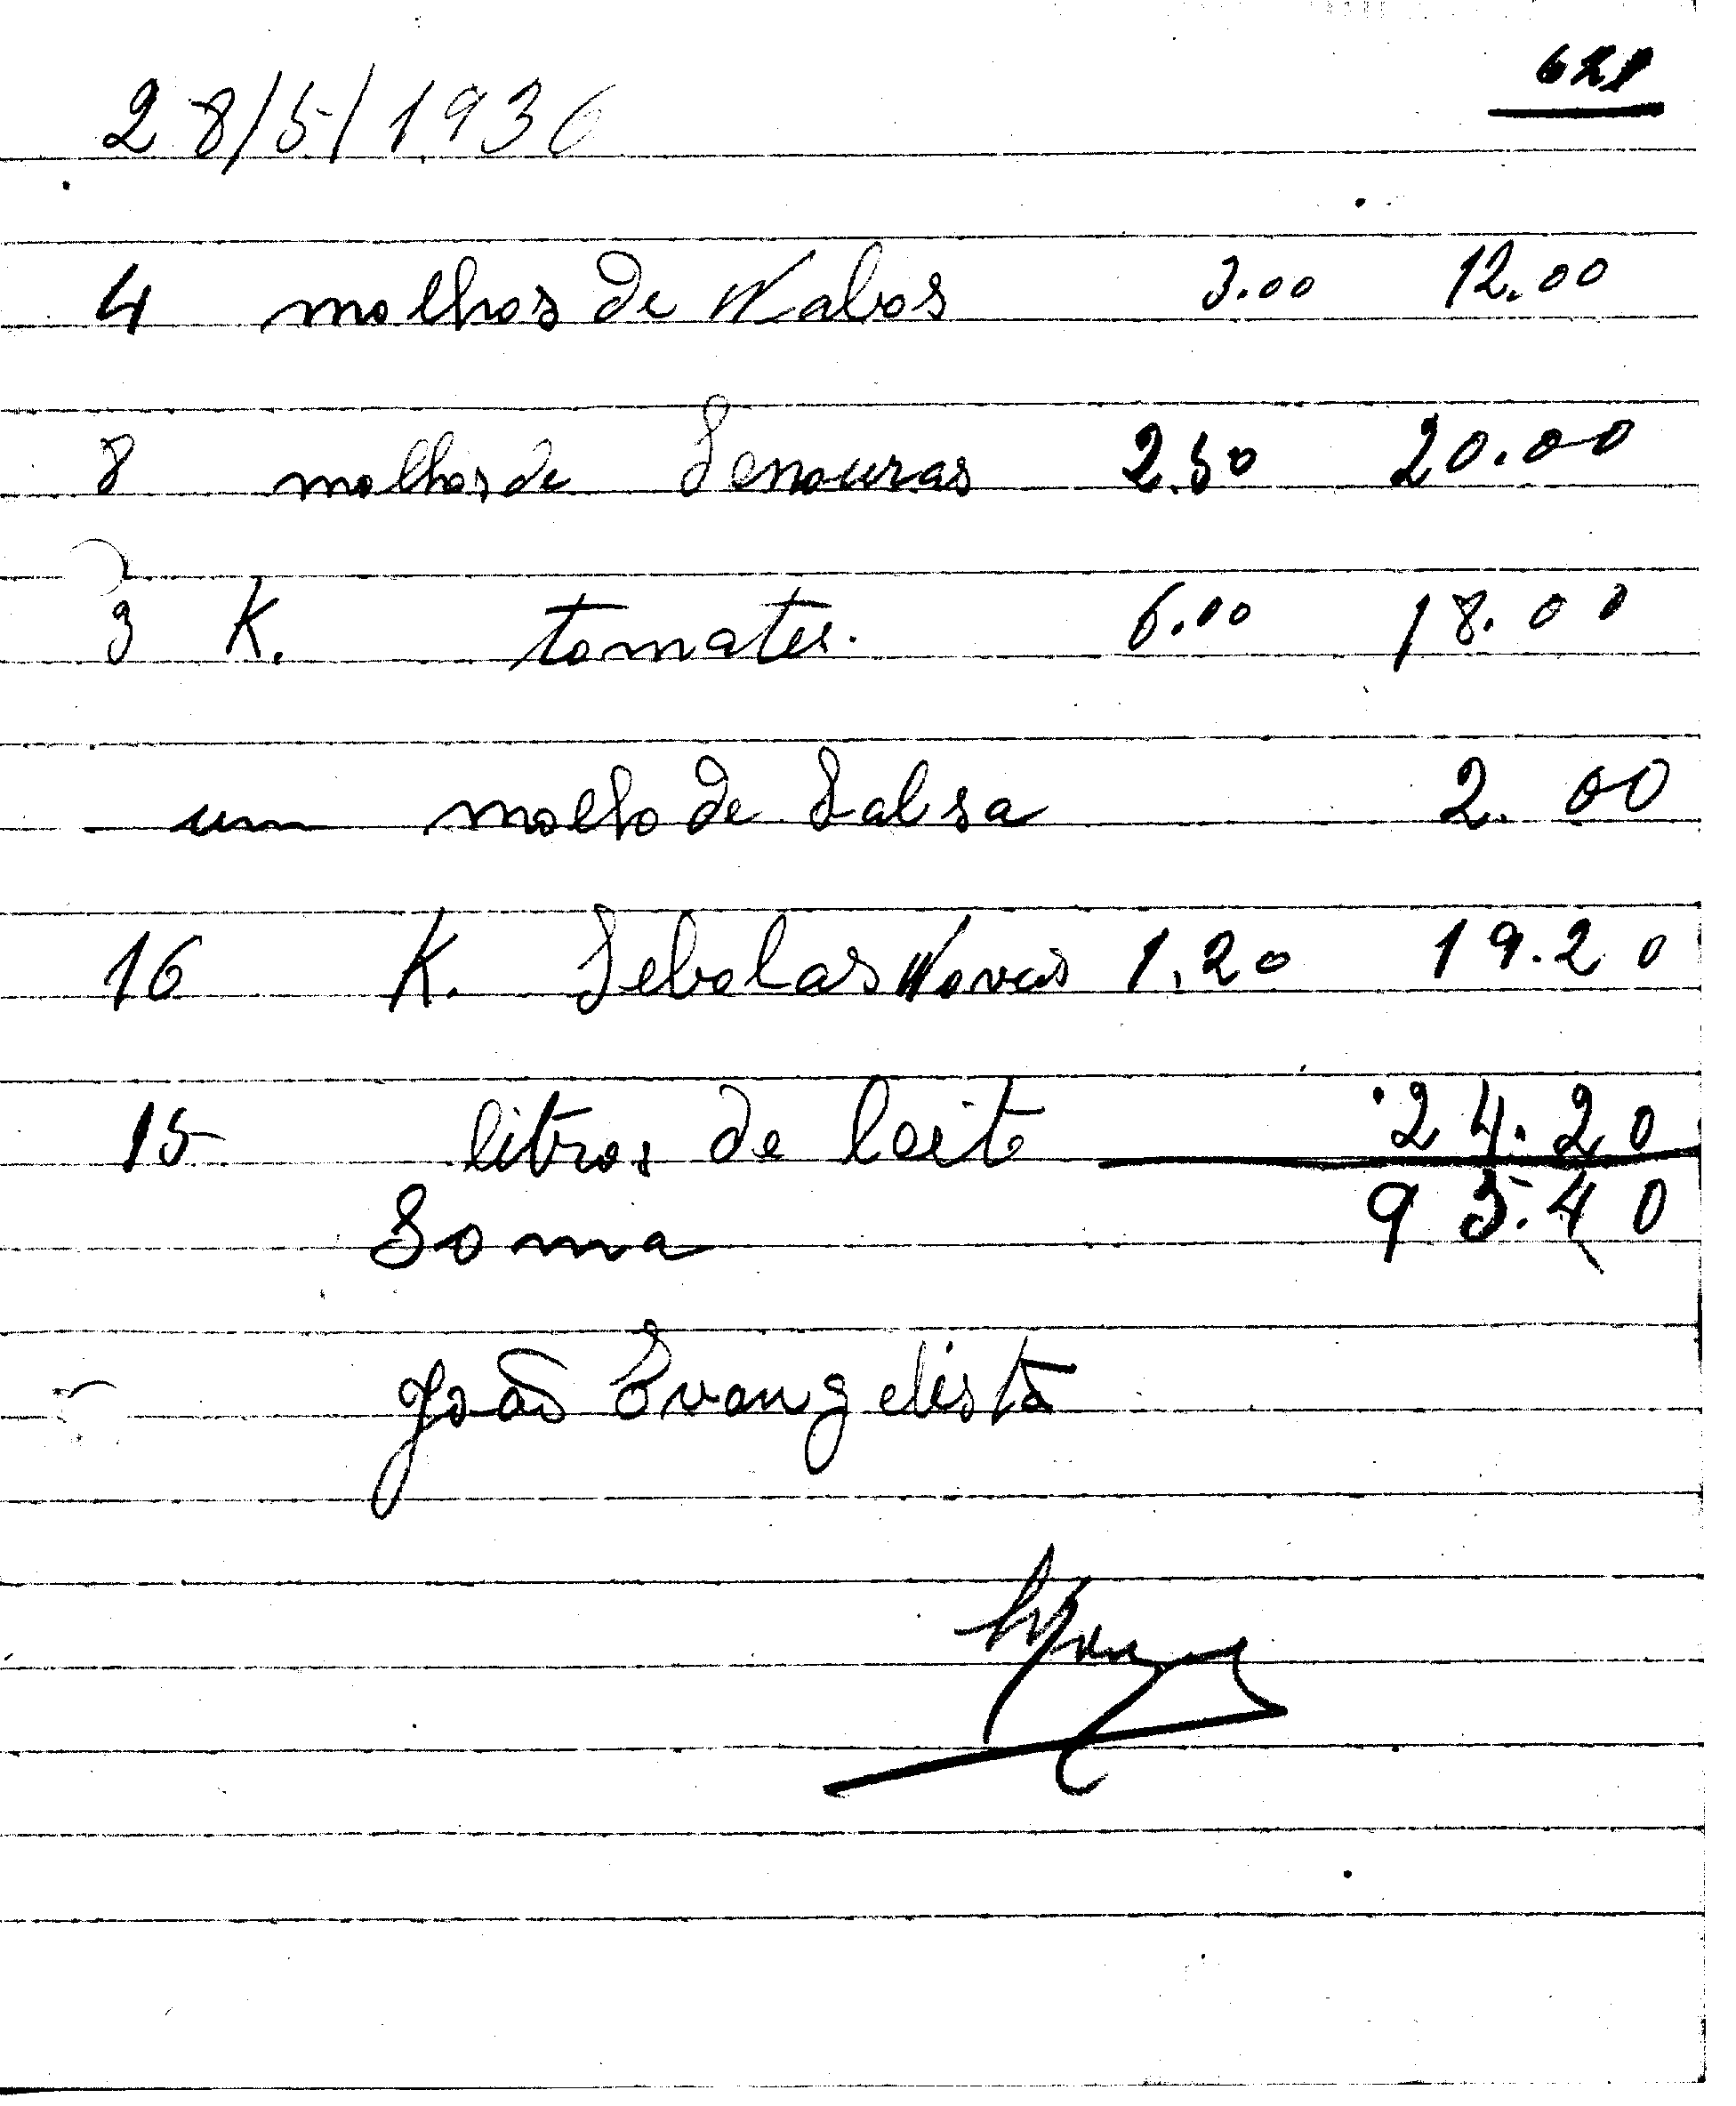 621
28/5/1936
4 molhos de Nabos 3.00 12.00
8 molhos de Senouras 2.50 20.00
3 K. tomates. 6.00 18.00
um molho de Salsa 2.00
16 K. Sebolas Novas 1.20 19.20
15 litros de leite 24.20
Soma 95.40
João Evangelista